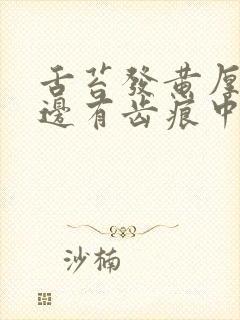 舌苔發黃厚
邊有齿痕中
沙楠